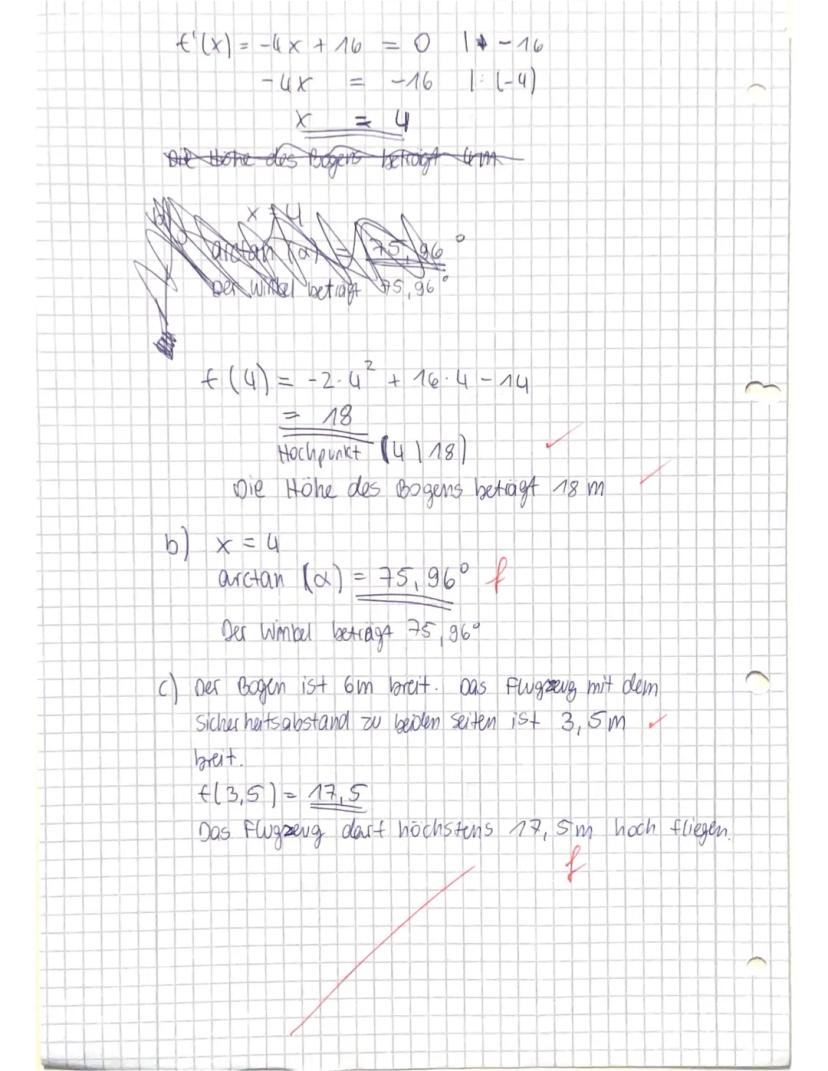 f'(x) = -4x + 16 = 0 | -16
-4x = -16 |: (-4)
x = 4
Die Höhe des Bogens beträgt 4m
x = 4
arctan (α) = 75,96°
Der Winkel beträgt 75,96°
f(4) = -2·4² + 16·4 - 14
= 18
Hochpunkt (4|18)
Die Höhe des Bogens beträgt 18 m
b) x = 4
arctan (α) = 75,96° f
Der Winkel beträgt 75,96°
c) Der Bogen ist 6m breit. Das Flugzeug mit dem
Sicherheitsabstand zu beiden Seiten ist 3,5m
breit.
f(3,5) = 17,5
Das Flugzeug darf höchstens 17,5m hoch fliegen.
f